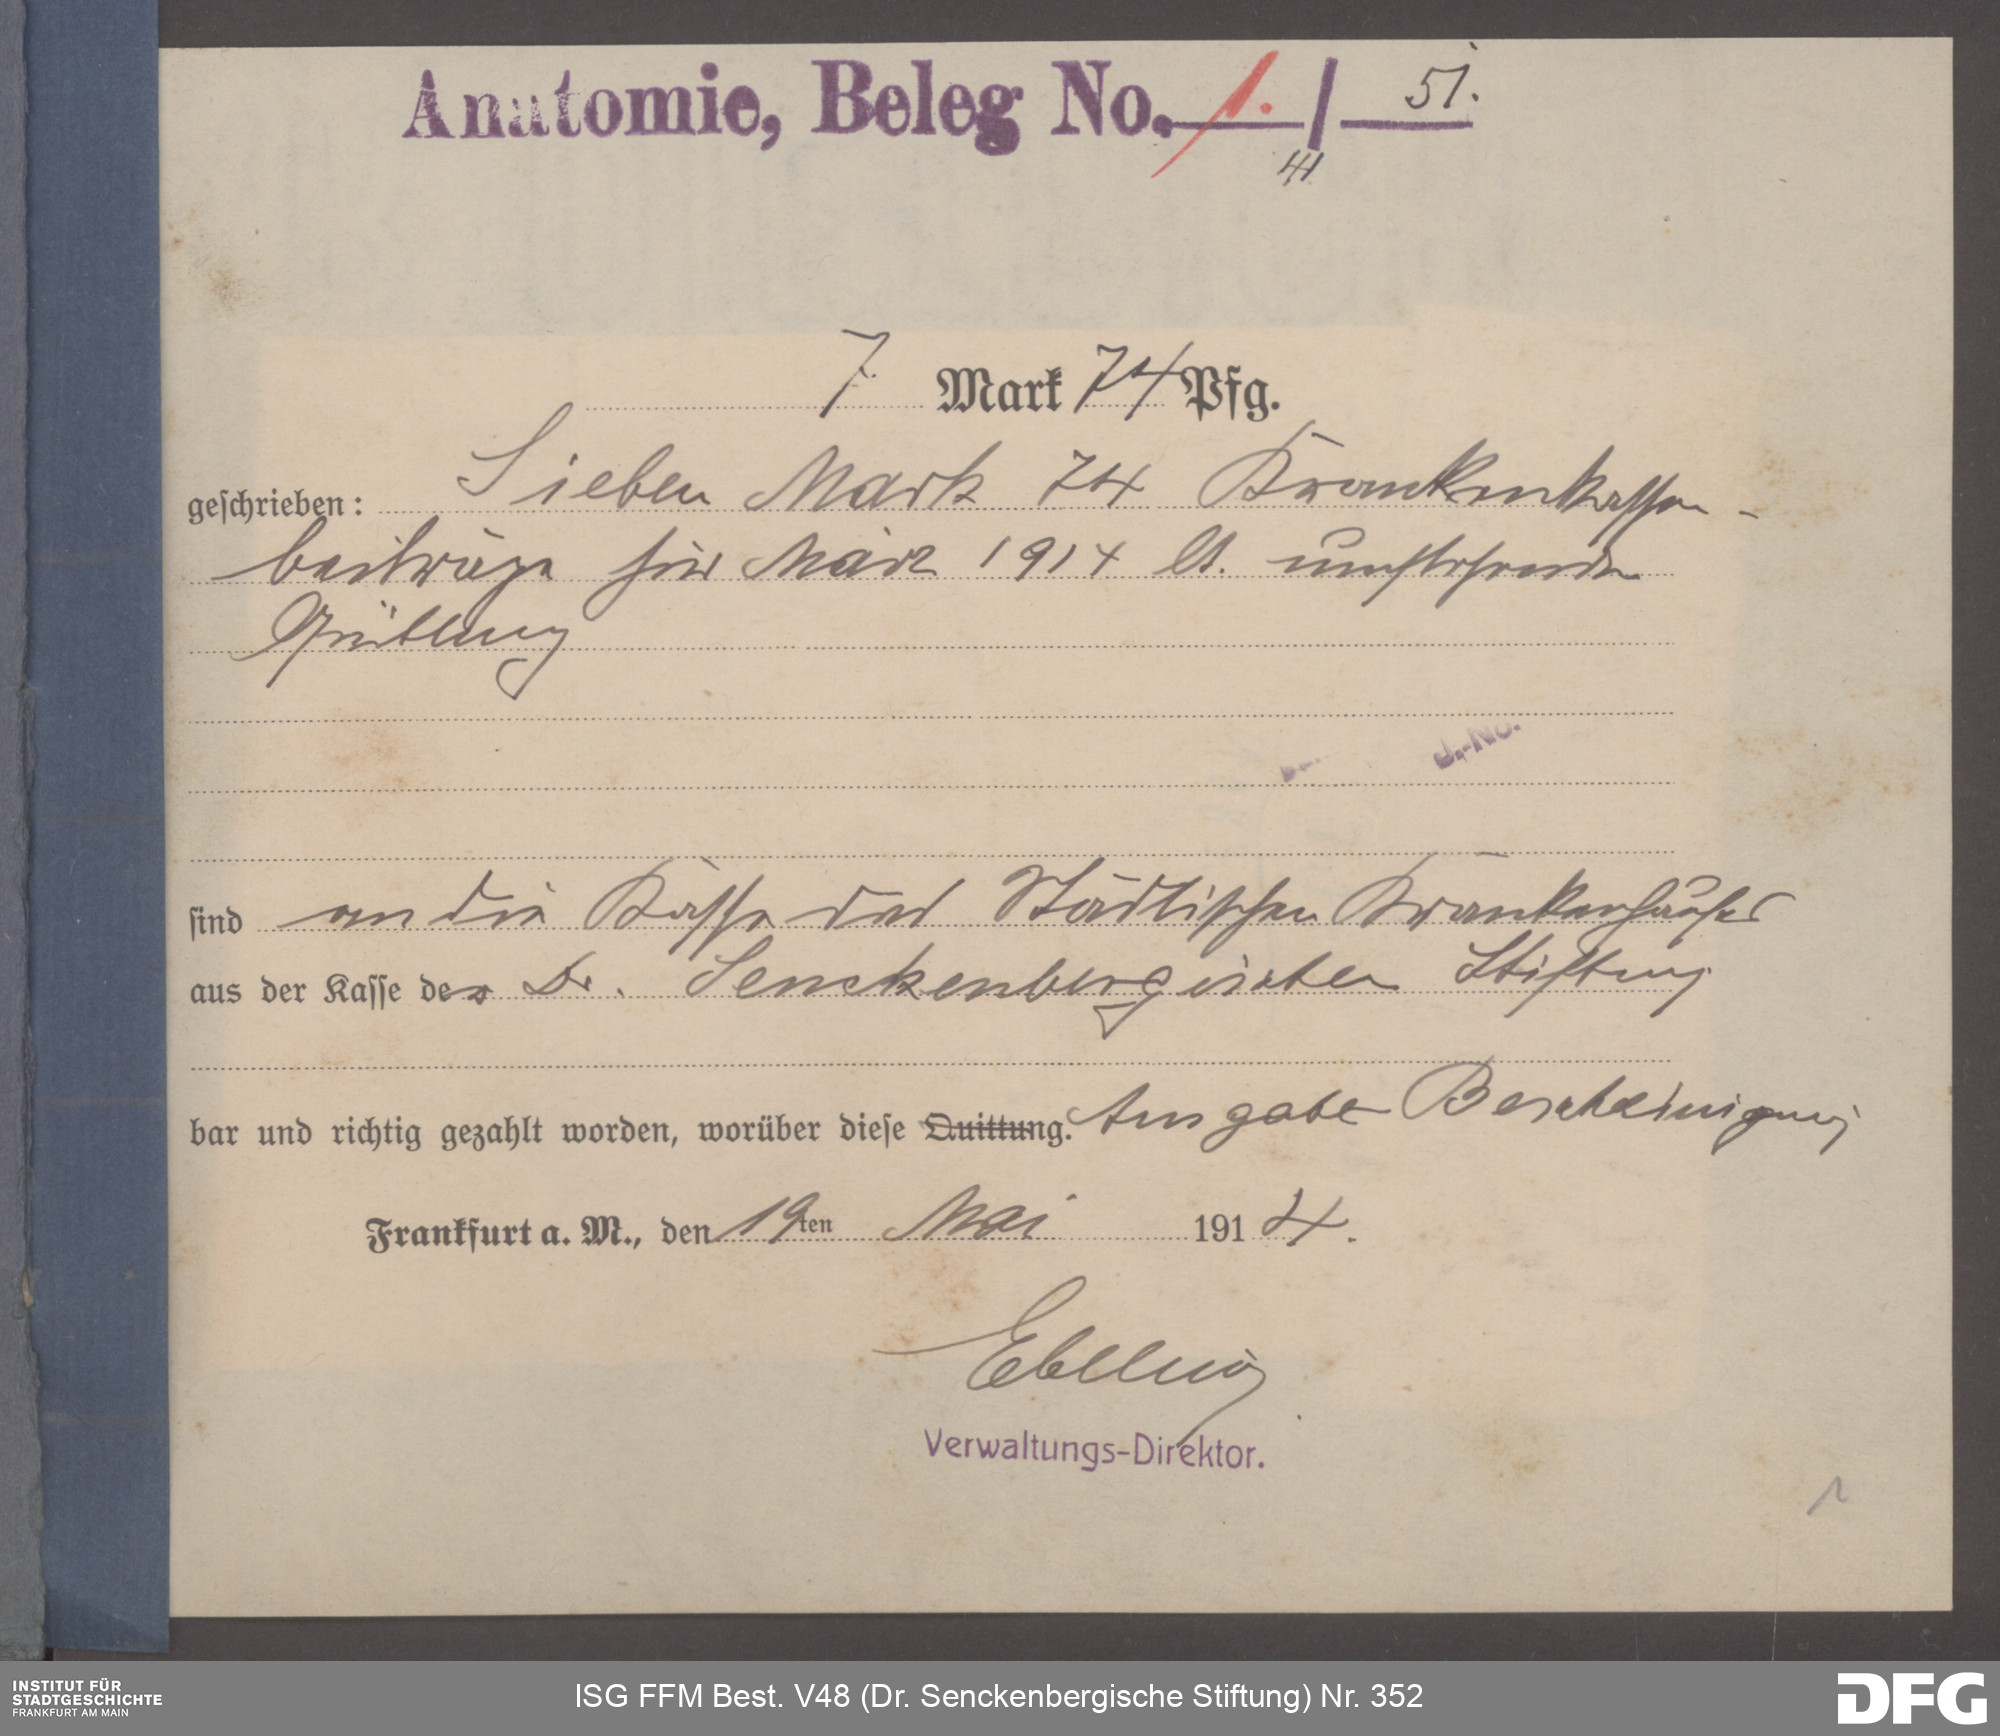 Anatomie, Beleg No. 1. / 51.
7 Mark 74 Pfg.
geschrieben: Sieben Mark 74 Krankenkassen-
beiträge für März 1914 lt. umstehender
Quittung
J.-No.
sind an die Kasse des Städtischen Krankenhauses
aus der Kasse der Dr. Senckenbergischen Stiftung
bar und richtig gezahlt worden, worüber diese Quittung. Ausgabe Bescheinigung
Frankfurt a. M., den 19ten Mai 1914.
Ebeling
Verwaltungs-Direktor.
1
INSTITUT FÜR
STADTGESCHICHTE
FRANKFURT AM MAIN
ISG FFM Best. V48 (Dr. Senckenbergische Stiftung) Nr. 352
DFG